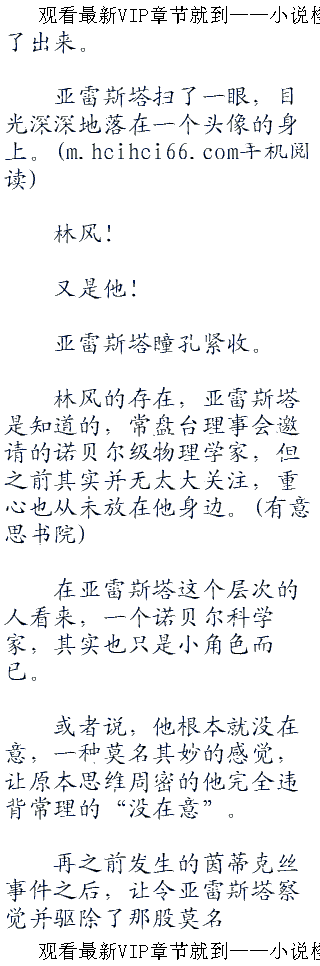 观看最新VIP章节就到——小说检
了出来。
亚雷斯塔扫了一眼，目
光深深地落在一个头像的身
上。(m.hcihci66.com手机阅
读)
林风！
又是他！
亚雷斯塔瞳孔紧收。
林风的存在，亚雷斯塔
是知道的，常盘台理事会邀
请的诺贝尔级物理学家，但
之前其实并无太大关注，重
心也从未放在他身边。(有意
思书院)
在亚雷斯塔这个层次的
人看来，一个诺贝尔科学
家，其实也只是小角色而
已。
或者说，他根本就没在
意，一种莫名其妙的感觉，
让原本思维周密的他完全违
背常理的“没在意”。
再之前发生的茵蒂克丝
事件之后，让令亚雷斯塔察
觉并驱除了那股莫名
观看最新VIP章节就到——小说